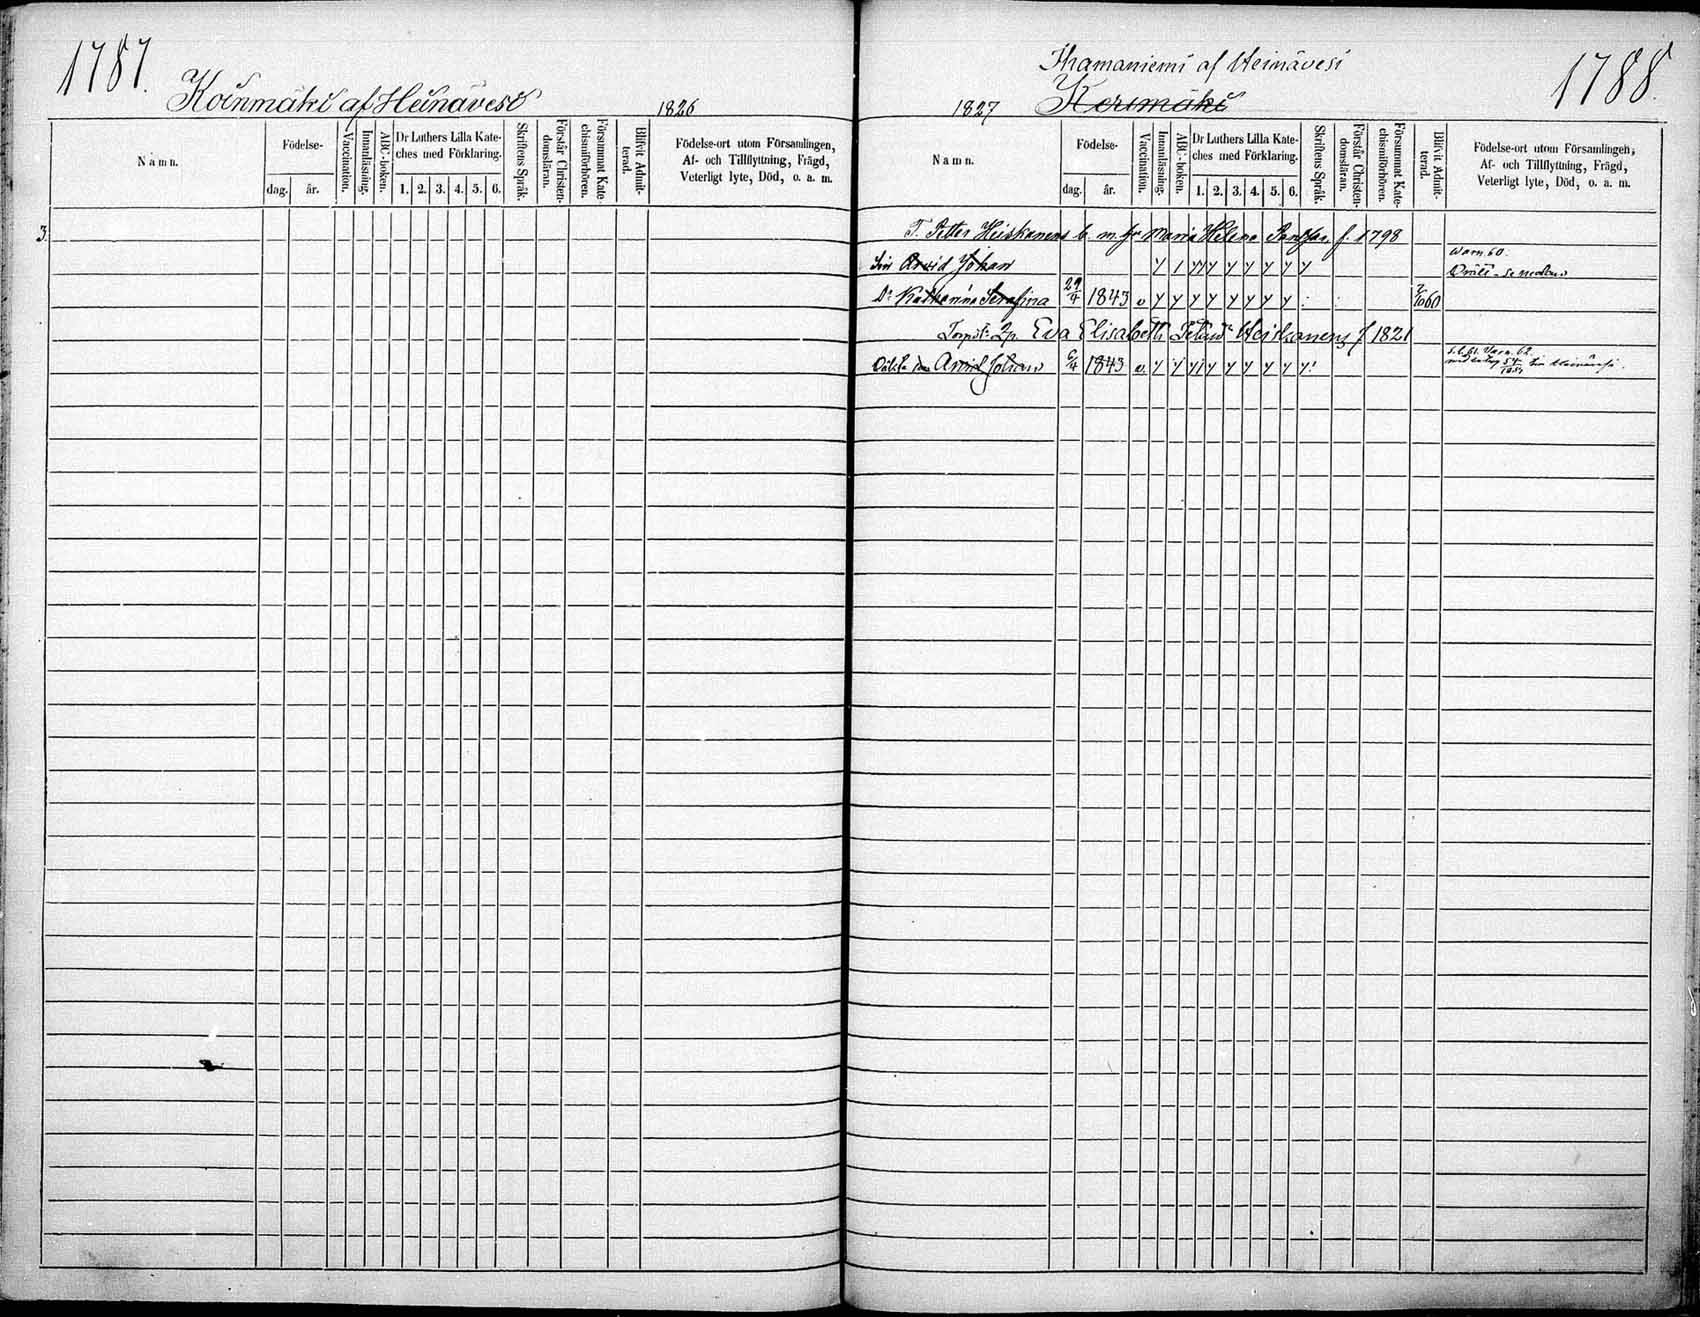 1787.
Koinmäki af Heinävesi
1826
Namn.
Födelse-
dag.
år.
Vaccination.
Innanläsning.
ABC-boken.
Dr Luthers Lilla Kate-
ches med Förklaring.
1. 2. 3. 4. 5. 6.
Skriftens Språk.
Förstår Christen-
domsläran.
Försummat Kate-
chismiförhören.
Blifvit Admit-
terad.
Födelse-ort utom Församlingen,
Af- och Tillflyttning, Frägd,
Veterligt lyte, Död, o. a. m.
3.
Ihamaniemi af Heinävesi
1788.
1827
Kerimäki
Namn.
Födelse-
dag.
år.
Vaccination.
Innanläsning.
ABC-boken.
Dr Luthers Lilla Kate-
ches med Förklaring.
1. 2. 3. 4. 5. 6.
Skriftens Språk.
Förstår Christen-
domsläran.
Försummat Kate-
chismiförhören.
Blifvit Admit-
terad.
Födelse-ort utom Församlingen,
Af- och Tillflyttning, Frägd,
Veterligt lyte, Död, o. a. m.
T. Petter Heiskanens b. m. hr Maria Helena f. 1798
Arvid Johan
Katharina Serafina 29/4 1843 60
Eva Elisabeth Heiskanens f 1821
Arvid Johan 6/4 1843